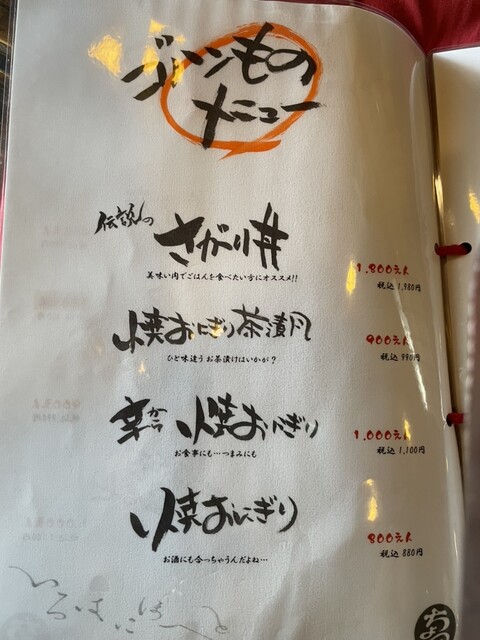 ゴハンもの
メニュー
伝説の
さがり丼
美味い肉でごはんを食べたい方にオススメ!!
1,800えん
税込 1,980円
焼おにぎり茶漬風
ひと味違う お茶漬けはいかが？
900えん
税込 990円
辛から焼おにぎり
お食事にも…つまみにも
1,000えん
税込 1,100円
焼おにぎり
お酒にも合っちゃうんだよね…
800えん
税込 880円
いろはにほへと